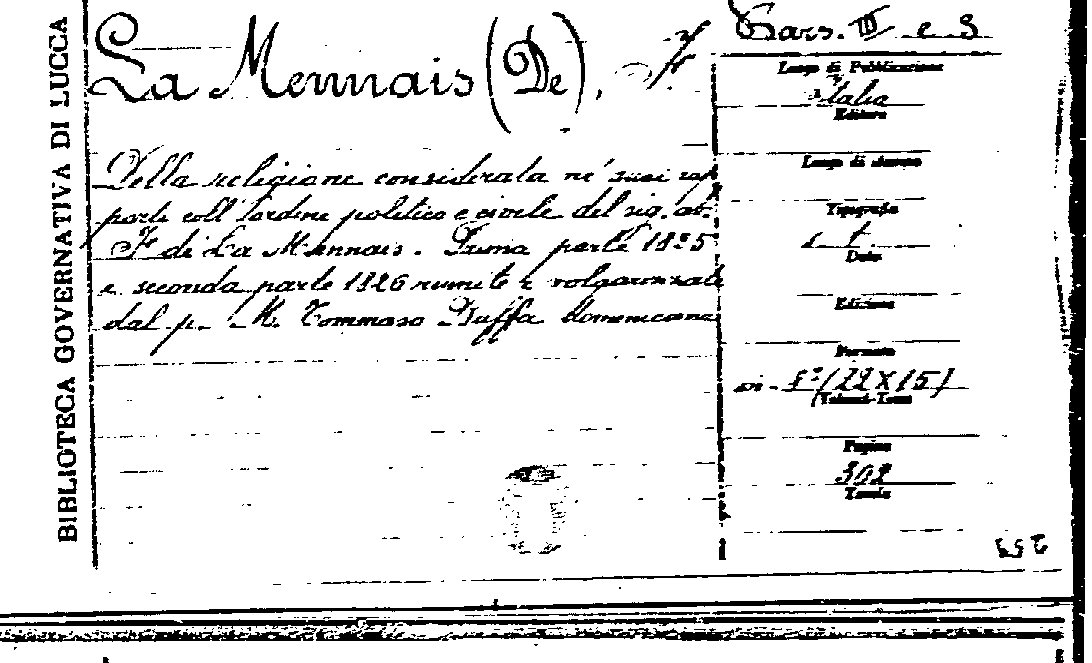 BIBLIOTECA GOVERNATIVA DI LUCCA
La Mennais (De), F.
Della religione considerata ne' suoi rap
porti coll'ordine politico e civile del sig. ab.
F. de La Mennais. Prima parte 1825
e seconda parte 1826 riunite e volgarizzate
dal p. M. Tommaso Buffa domenicano
Bars. III e 3
Luogo di Pubblicazione
Italia
Editore
Luogo di stampa
Tipografia
s. t.
Data
Edizione
Formato
in-8° (22 X 15)
Pagine
302
Tavole